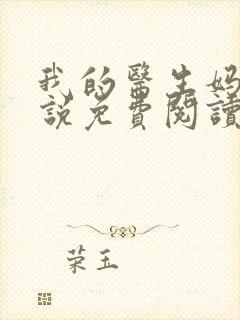 我的醫生媽
說免費閱讀
荣玉